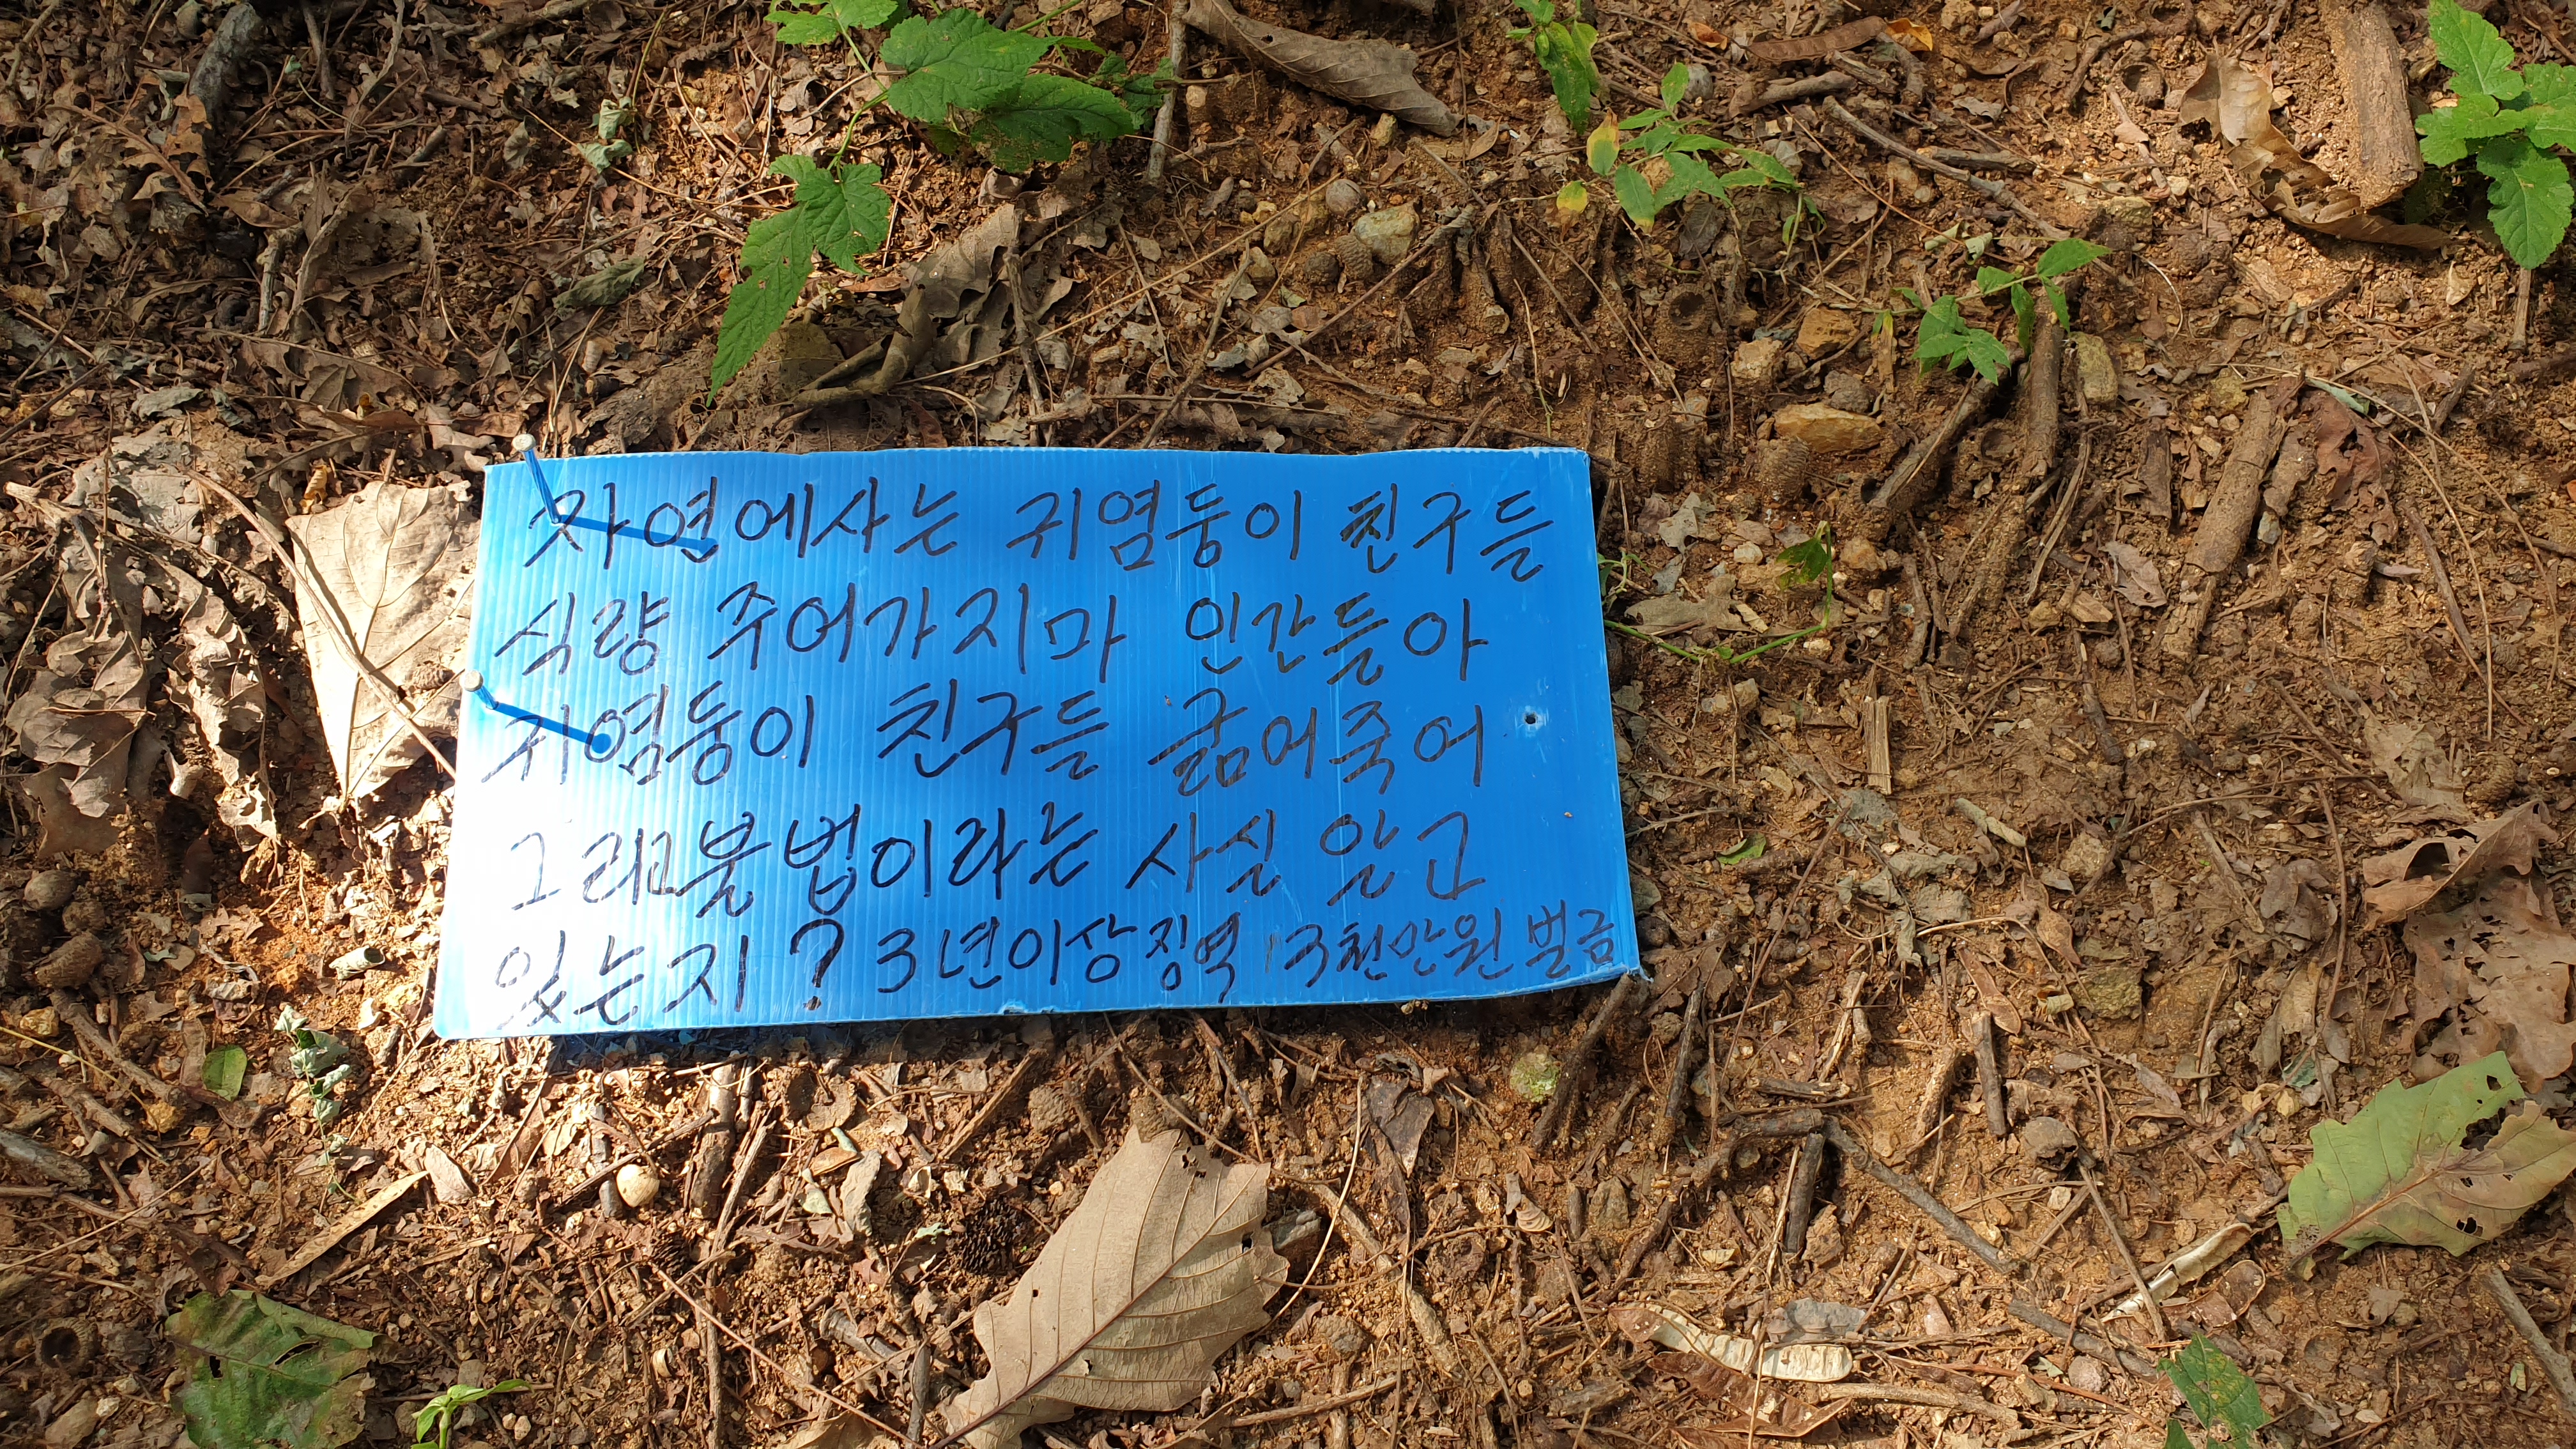 자연에사는 귀염둥이 친구들
식량 주어가지마 인간들아
귀염둥이 친구들 굶어죽어
그리고불법이라는 사실 알고
있는지? 3년이상징역 / 3천만원 벌금